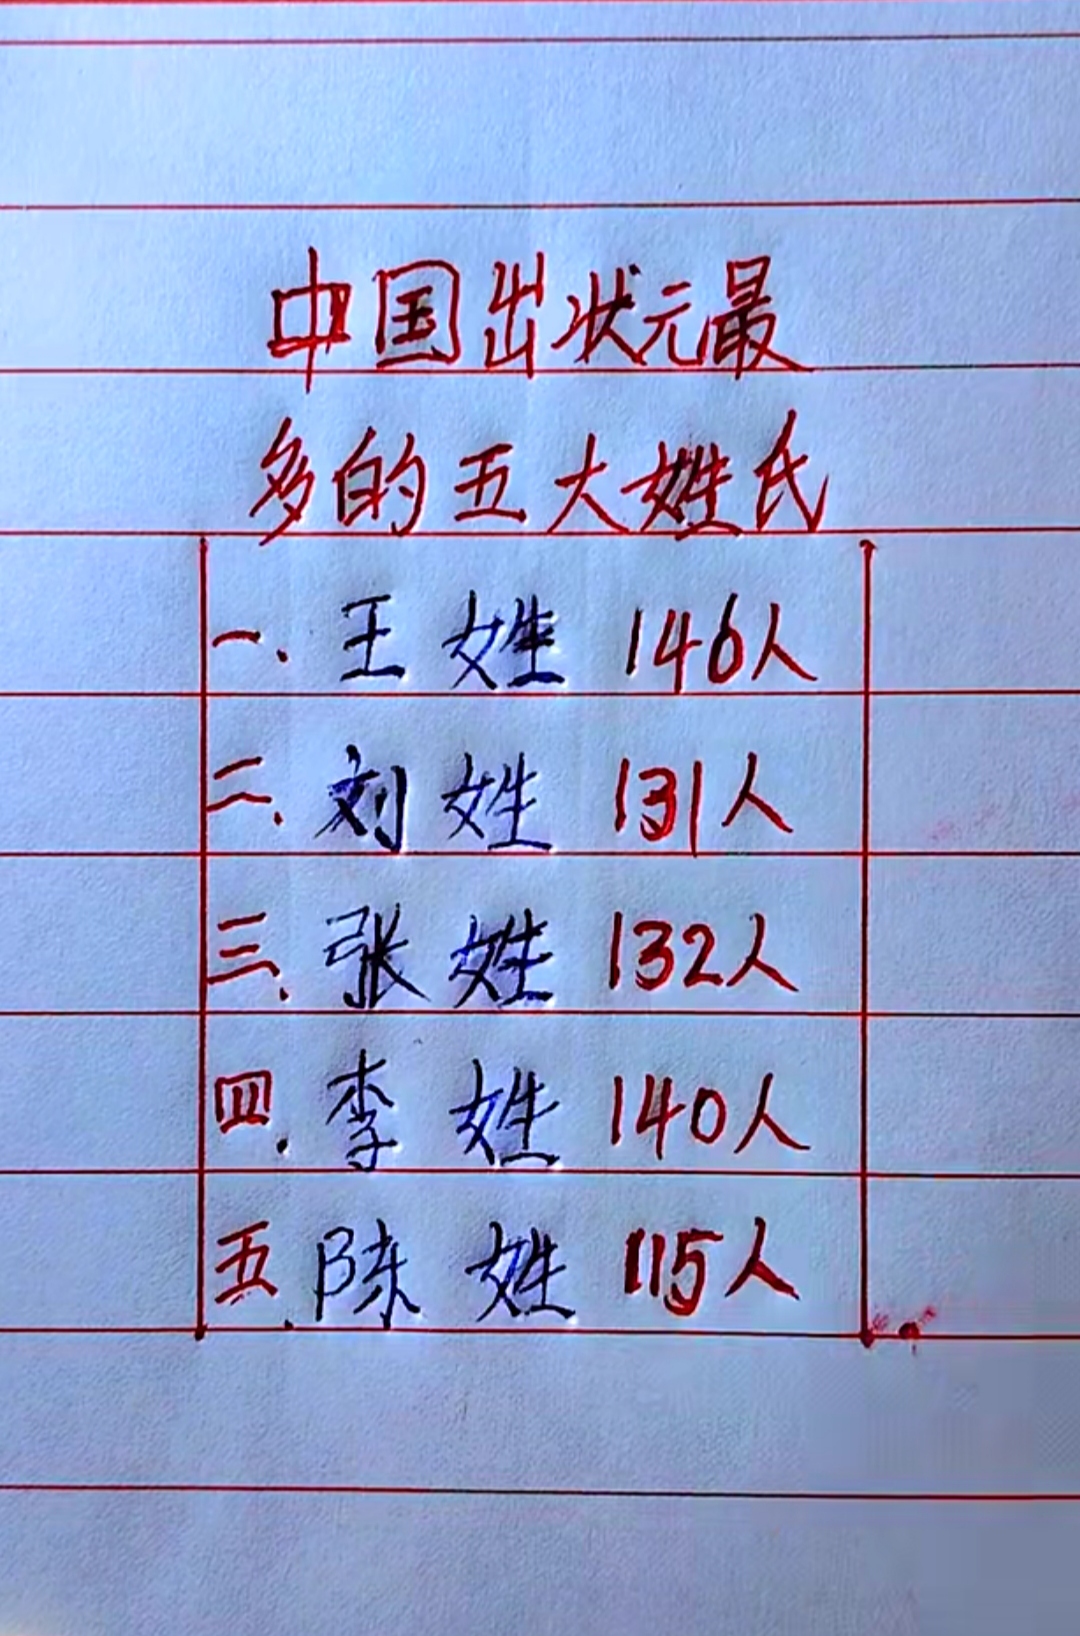 中国出状元最
多的五大姓氏
一、王姓 146人
二、刘姓 131人
三、张姓 132人
四、李姓 140人
五、陈姓 115人